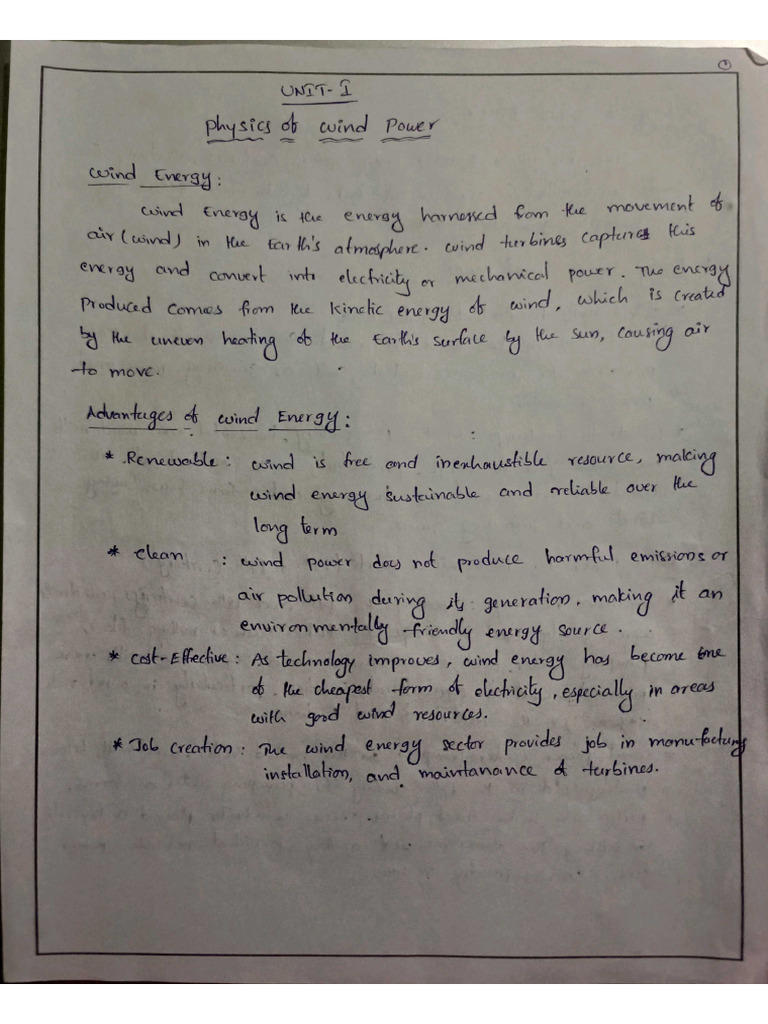 1
UNIT-I
Physics of wind Power
Wind Energy:
Wind Energy is the energy harnessed fom the movement of
air (wind) in the Earth's atmosphere. Wind turbines captures this
energy and convert into electricity or mechanical power. The energy
Produced comes from the kinetic energy of wind, which is created
by the uneven heating of the Earth's surface by the sun, causing air
to move.
Advantages of wind Energy:
* Renewable: wind is free and inexhaustible resource, making
wind energy sustainable and reliable over the
long term
* Clean : wind power does not produce harmful emissions or
air pollution during its generation, making it an
environmentally friendly energy source.
* Cost-Effective: As technology improves, wind energy has become one
of the cheapest form of electricity, especially in areas
with good wind resources.
* Job Creation: The wind energy sector provides job in manufacturing
installation, and maintanance of turbines.